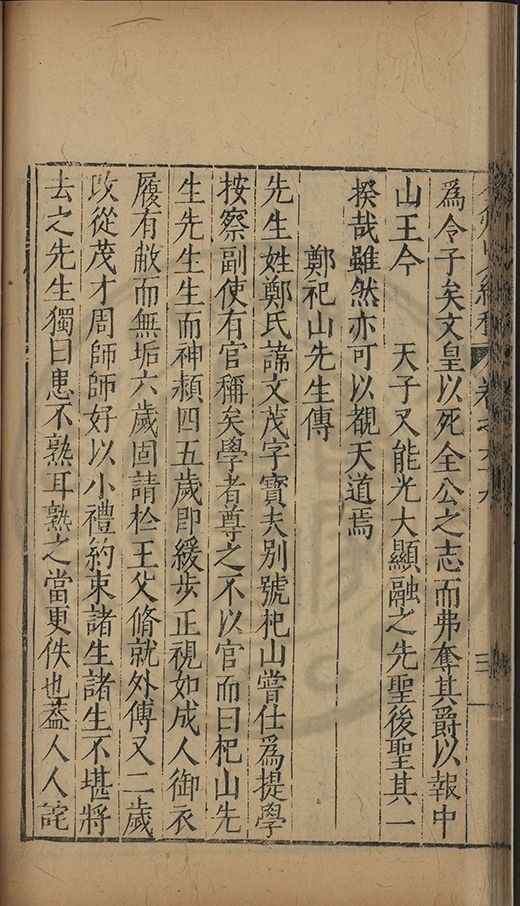 州山人續稿 卷之六十九 三
為令子矣文皇以死全公之志而弗奪其爵以報中
山王今 天子又能光大顯融之先聖後聖其一
揆哉雖然亦可以覩天道焉
鄭祀山先生傳
先生姓鄭氏諱文茂字寶夫別號杞山嘗仕為提學
按察副使有官稱矣學者尊之不以官而曰杞山先
生先生生而神頴四五歲即緩步正視如成人御衣
履有敝而無垢六歲固請於王父脩就外傅又二歲
改從茂才周師師好以小禮約束諸生諸生不堪將
去之先生獨曰患不熟耳熟之當更佚也蓋人人詫